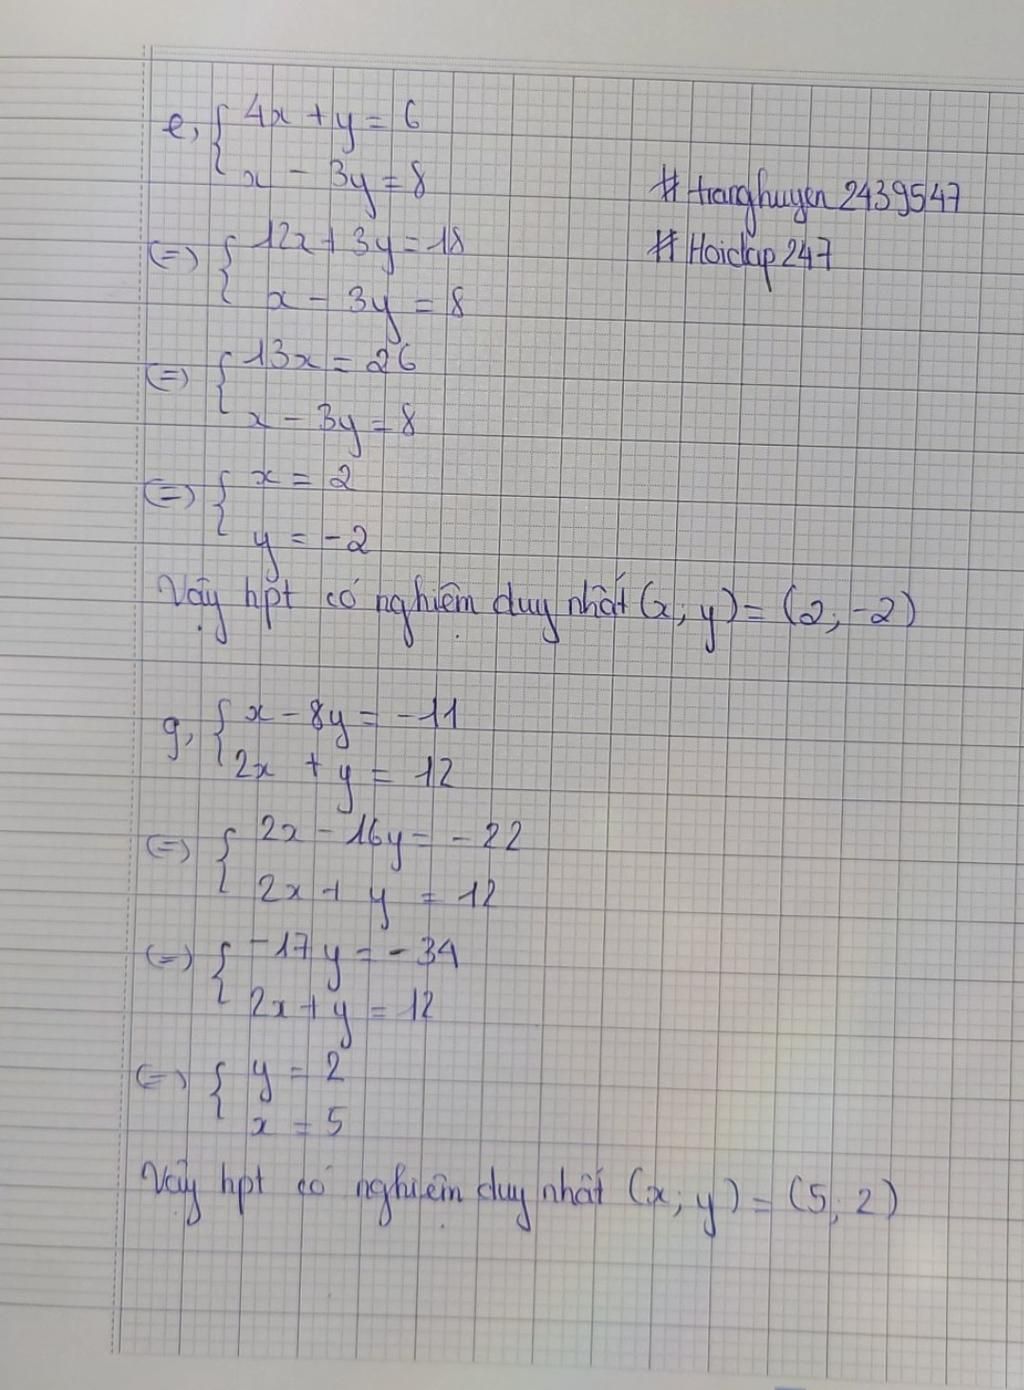 e, { 4x + y = 6
x - 3y = 8
# tranghuyen2439547
(=) { 12x + 3y = 18
# Hoidap247
x - 3y = 8
(=) { 13x = 26
x - 3y = 8
(=) { x = 2
y = -2
Vậy hpt có nghiệm duy nhất (x; y) = (2; -2)
g, { x - 8y = -11
2x + y = 12
(=) { 2x - 16y = -22
2x + y = 12
(=) { -17y = -34
2x + y = 12
(=) { y = 2
x = 5
Vậy hpt có nghiệm duy nhất (x; y) = (5; 2)